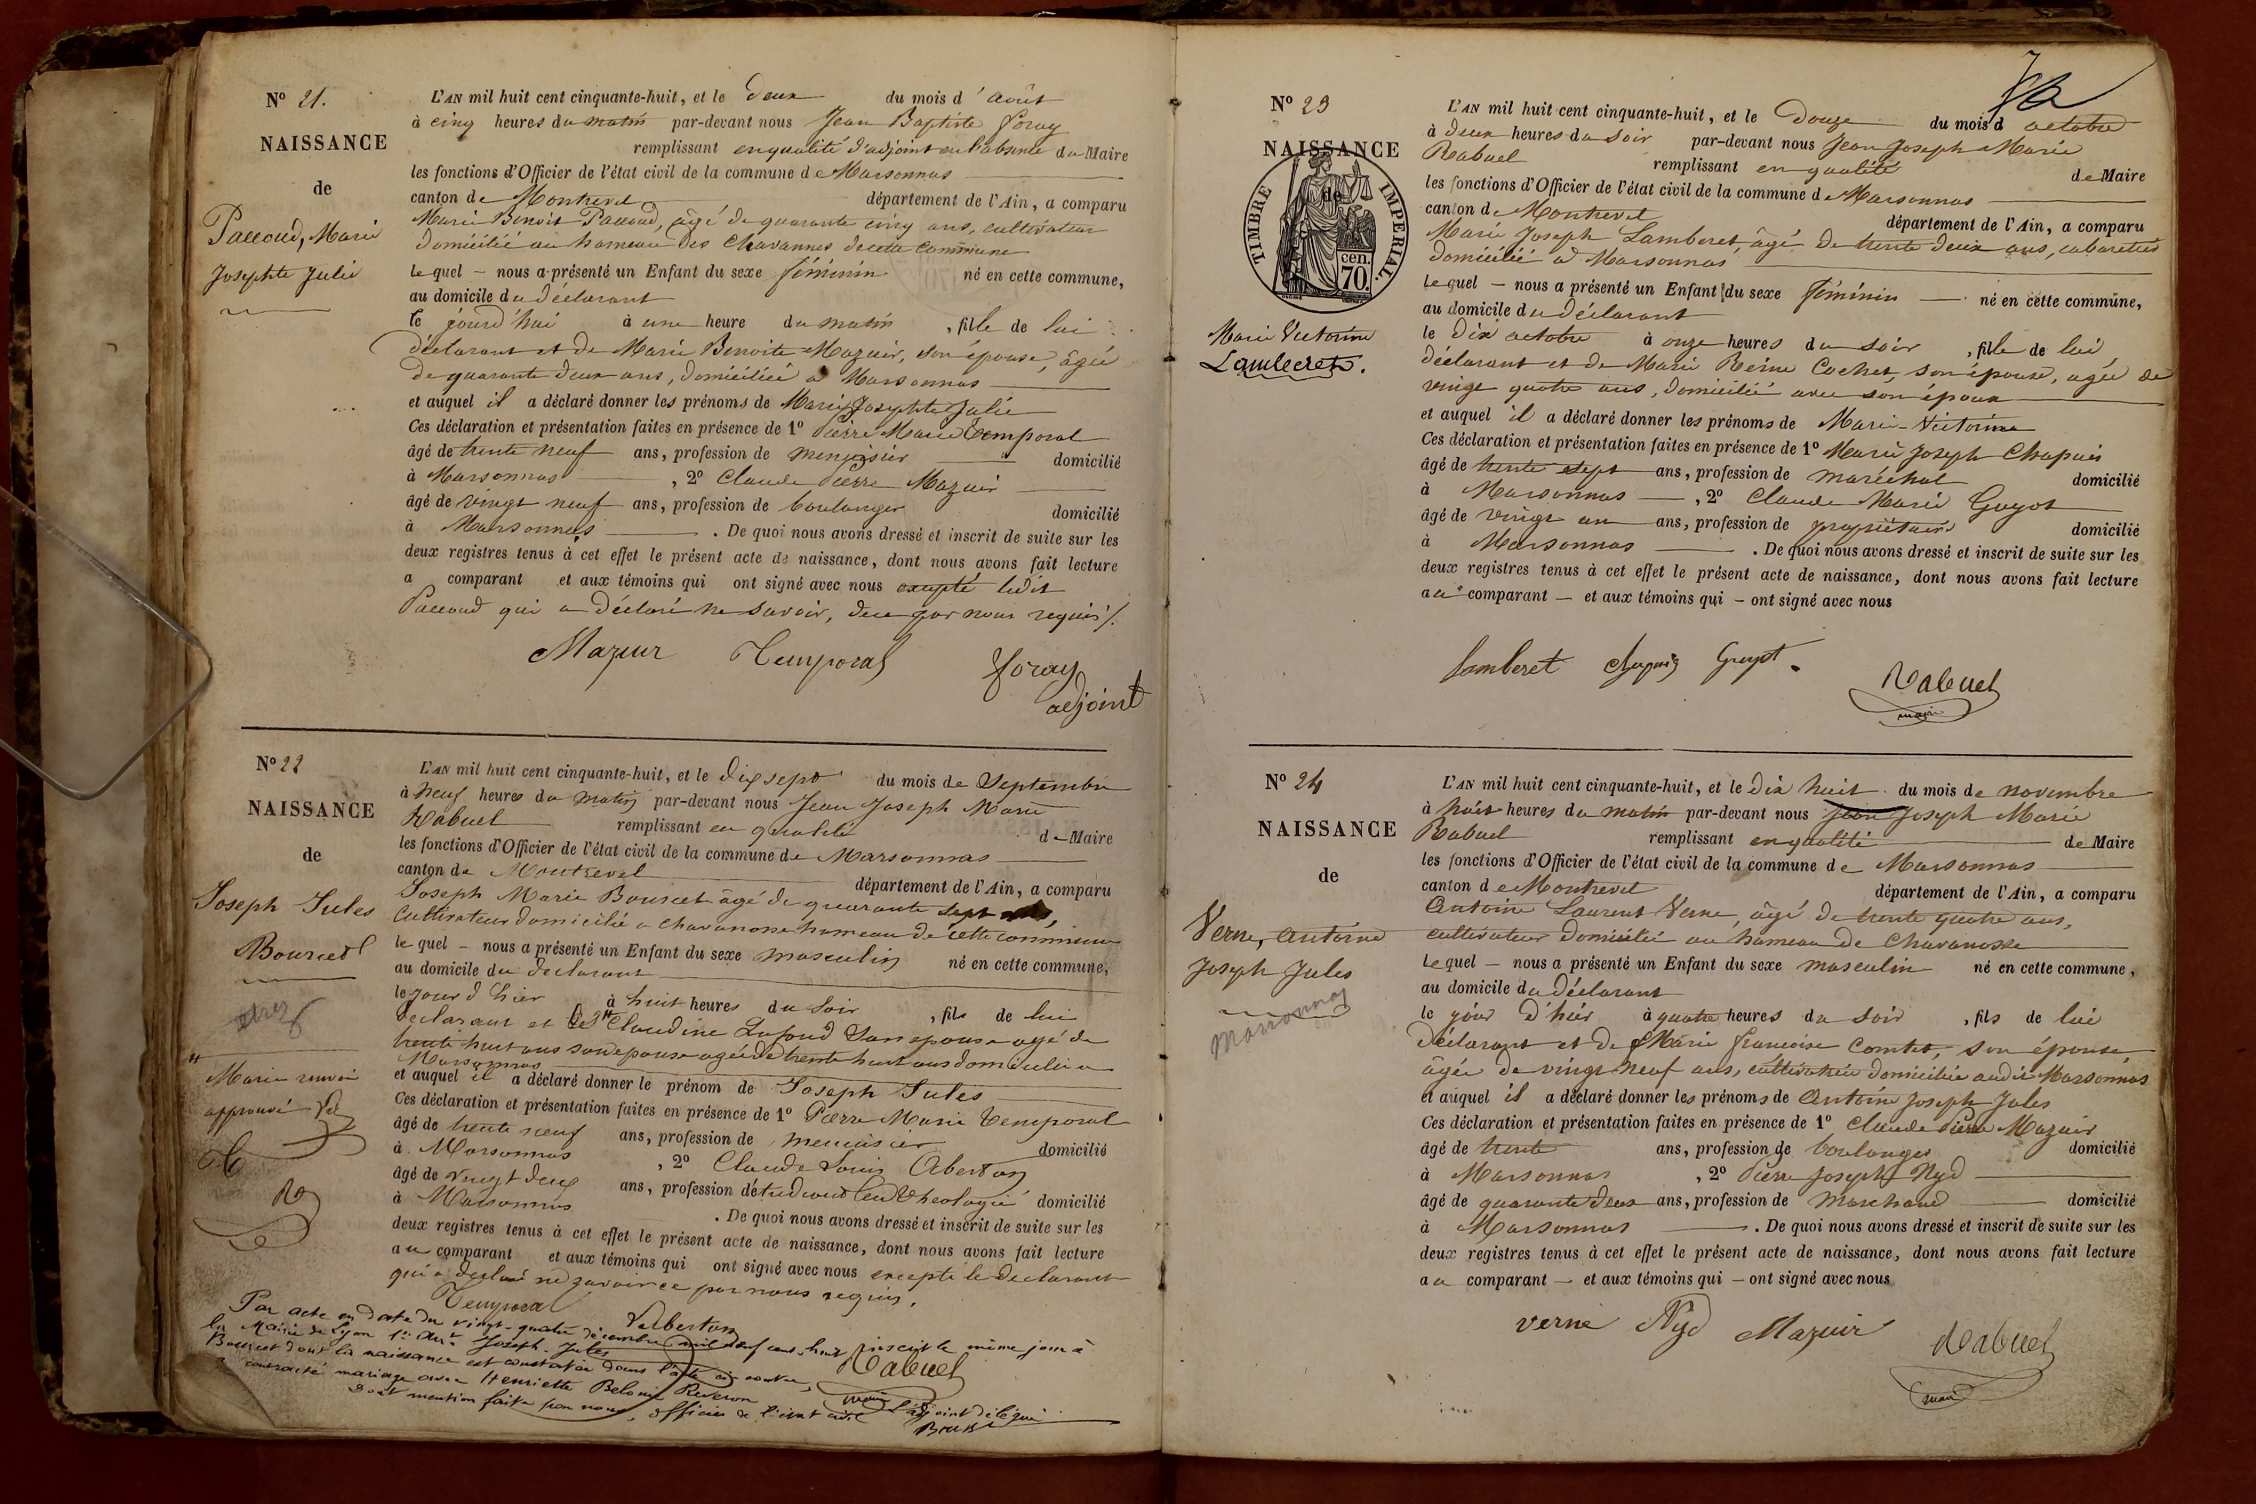 N° 21.
NAISSANCE
de
Paccoud, Marie
Josephte Julie
L'AN mil huit cent cinquante-huit, et le deux du mois d'août
à cinq heures du matin par-devant nous Jean Baptiste Foray
remplissant en qualité d'adjoint en l'absence du Maire
les fonctions d'Officier de l'état civil de la commune de Marsonnas
canton de Montrevel département de l'Ain, a comparu
Marie Benoit Paccoud, âgé de quarante cinq ans, cultivateur
domicilié au hameau des Chavannes de cette commune
lequel – nous a présenté un Enfant du sexe féminin né en cette commune,
au domicile du déclarant
le jourd'hui à une heure du matin, fille de lui
déclarant et de Marie Benoite Mazuir, son épouse, âgée
de quarante deux ans, domiciliée à Marsonnas
et auquel il a déclaré donner les prénoms de Marie Josephte Julie
Ces déclaration et présentation faites en présence de 1° Pierre Marie Temporal
âgé de trente neuf ans, profession de menuisier domicilié
à Marsonnas, 2° Claude Pierre Mazuir
âgé de vingt neuf ans, profession de boulanger domicilié
à Marsonnas. De quoi nous avons dressé et inscrit de suite sur les
deux registres tenus à cet effet le présent acte de naissance, dont nous avons fait lecture
a comparant et aux témoins qui ont signé avec nous excepté ledit
Paccoud qui a déclaré ne savoir, de ce par nous requis ./.
Mazuir Temporal Foray
adjoint
N° 22
NAISSANCE
de
Joseph Jules
Bourcet
Marie renvoi
approuvé
L'AN mil huit cent cinquante-huit, et le dix sept du mois de Septembre
à neuf heures du matin par-devant nous Jean Joseph Marie
Rabuel remplissant en qualité de Maire
les fonctions d'Officier de l'état civil de la commune de Marsonnas
canton de Montrevel département de l'Ain, a comparu
Joseph Marie Bourcet âgé de quarante sept ans,
cultivateur domicilié a chavanosse hameau de cette commune
lequel – nous a présenté un Enfant du sexe masculin né en cette commune,
au domicile du declarant
le jour d'hier à huit heures du soir, fils de lui
declarant et de Claudine Dufoud Son epouse agé de
trente huit ans son epouse agée de trente huit ans domiciliée a
Marsonnas
et auquel il a déclaré donner le prénom de Joseph Jules
Ces déclaration et présentation faites en présence de 1° Pierre Marie Temporal
âgé de trente neuf ans, profession de menuisier domicilié
à Marsonnas, 2° Claude Louis Alberton
âgé de vingt deux ans, profession d'étudiant en theologie domicilié
à Marsonnas. De quoi nous avons dressé et inscrit de suite sur les
deux registres tenus à cet effet le présent acte de naissance, dont nous avons fait lecture
au comparant et aux témoins qui ont signé avec nous excepté le declarant
qui a declaré ne savoir ce par nous requis.
Temporal Alberton
Rabuel
maire
Par acte en date du vingt-quatre décembre mil neuf cent huit inscrit le même jour à
la Mairie de Lyon 1er Arrt Joseph-Jules
Bourcet dont la naissance est constatée dans l'acte ci-contre,
a contracté mariage avec Henriette Belonie Reveron
Dont mention faite par nous, officier de l'état civil
L'adjoint délégué
N° 23
NAISSANCE
de
TIMBRE IMPERIAL.
cén.
70.
Marie Victorine
Lamberet.
L'AN mil huit cent cinquante-huit, et le Douze du mois d'octobre
à deux heures du soir par-devant nous Jean Joseph Marie
Rabuel remplissant en qualité de Maire
les fonctions d'Officier de l'état civil de la commune de Marsonnas
canton de Montrevel département de l'Ain, a comparu
Marie Joseph Lamberet, âgé de trente deux ans, cabaretier
domicilié à Marsonnas
lequel – nous a présenté un Enfant du sexe féminin né en cette commune,
au domicile du déclarant
le dix octobre à onze heures du soir, fille de lui,
déclarant et de Marie Reine Cochet, son épouse, agée de
vingt quatre ans, domiciliée avec son époux
et auquel il a déclaré donner les prénoms de Marie-Victorine
Ces déclaration et présentation faites en présence de 1° Marie Joseph Chapuis
âgé de trente sept ans, profession de maréchal domicilié
à Marsonnas, 2° Claude Marie Guyot
âgé de vingt un ans, profession de propriétaire domicilié
à Marsonnas. De quoi nous avons dressé et inscrit de suite sur les
deux registres tenus à cet effet le présent acte de naissance, dont nous avons fait lecture
au comparant – et aux témoins qui – ont signé avec nous
Lamberet Chapuis Guyot
Rabuel
maire
N° 24
NAISSANCE
de
Verne, Antoine
Joseph Jules
Marsonnas
L'AN mil huit cent cinquante-huit, et le Dix huit du mois de novembre
à huit heures du matin par-devant nous Jean Joseph Marie
Rabuel remplissant en qualité de Maire
les fonctions d'Officier de l'état civil de la commune de Marsonnas
canton de Montrevel département de l'Ain, a comparu
Antoine Laurent Verne, âgé de trente quatre ans,
cultivateur domicilié au hameau de Chavanosse
lequel – nous a présenté un Enfant du sexe masculin né en cette commune,
au domicile du déclarant
le jour d'hier à quatre heures du soir, fils de lui
déclarant et de Marie Françoise Comtet, son épouse,
âgée de vingt neuf ans, cultivatrice domiciliée audit Marsonnas
et auquel il a déclaré donner les prénoms de Antoine Joseph Jules
Ces déclaration et présentation faites en présence de 1° Claude Pierre Mazuir
âgé de trente ans, profession de boulanger domicilié
à Marsonnas, 2° Pierre Joseph Nyd
âgé de quarante deux ans, profession de Marchand domicilié
à Marsonnas. De quoi nous avons dressé et inscrit de suite sur les
deux registres tenus à cet effet le présent acte de naissance, dont nous avons fait lecture
au comparant – et aux témoins qui – ont signé avec nous
verne Nyd Mazuir
Rabuel
maire